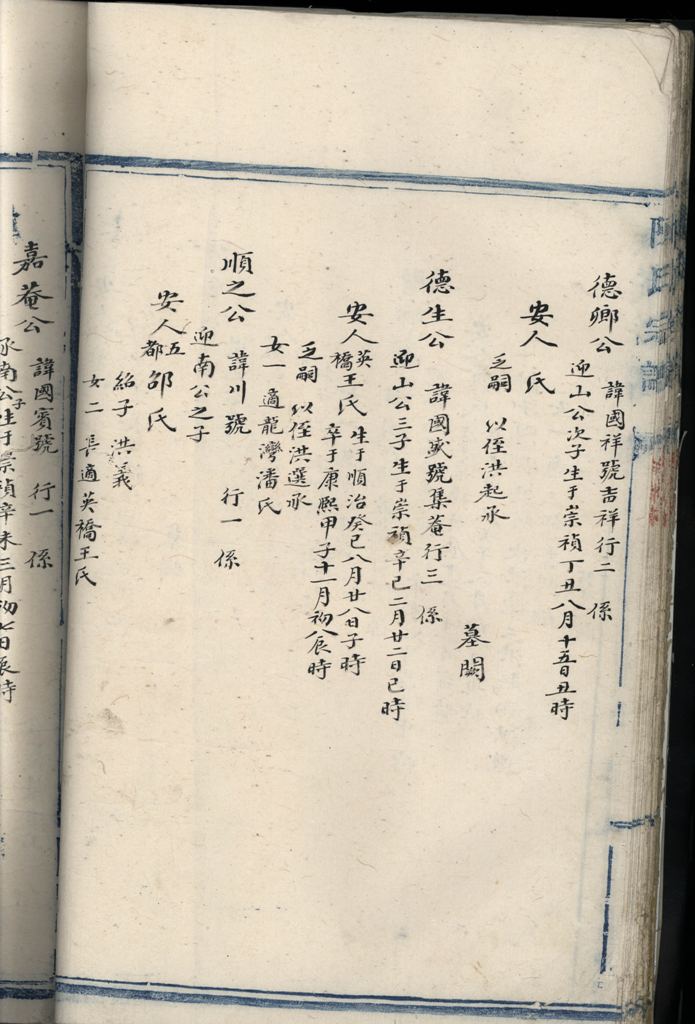 德卿公 諱國祥號吉祥行二 係
迎山公次子生于崇禎丁丑八月十五日丑時
安人 氏
乏嗣 以侄洪起承
墓闕
德生公 諱國盛號集菴行三 係
迎山公三子生于崇禎辛巳二月廿二日巳時
安人英橋王氏 生于順治癸巳八月廿八日子時
卒于康熙甲子十一月初八辰時
乏嗣 以侄洪選承
女一 適龍灣潘氏
順之公 諱川號 行一 係
迎南公之子
安人五都邵氏
紹子 洪義
女二 長適英橋王氏
嘉菴公 諱國賓號 行一 係
承南公子生于崇禎辛未三月初七日辰時